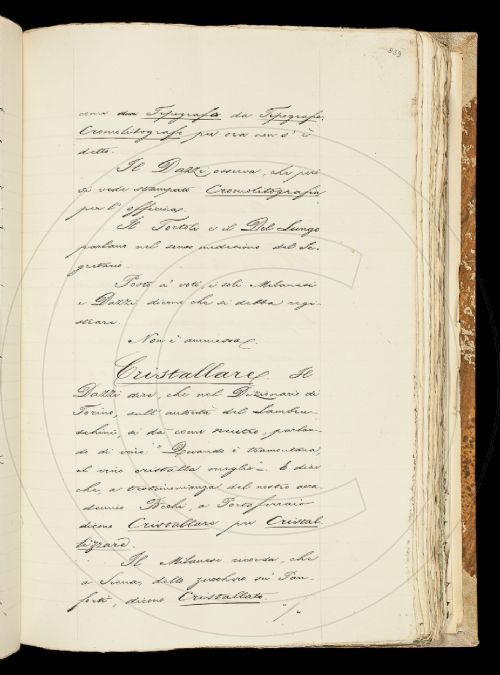 839
come da Tipografo da Tipografo,
Cromolitografo per ora non s'è
detto.
Il Dazzi osserva, che però
si vede stampato Cromolitografia
per l'officina.
Il Tortoli e il Del Lungo
parlano nel senso medesimo del Se-
gretario.
Posto a' voti, i soli Milanesi
e Dazzi dicono che si debba regi-
strare.
Non è ammessa.
Cristallare. Il
Dazzi dice, che nel Dizionario di
Torino, sull'autorità del Lambru-
schini, si dà come neutro, parlan-
do di vino: "Quando è tramontana,
il vino cristalla meglio". E dice
che, a testimonianza del nostro acca-
demico Bechi, a Portoferraio
dicono Cristallare per Cristal-
lizzare.
Il Milanesi ricorda, che
a Siena, dello zucchero su' Pan-
forti, dicono Cristallato.